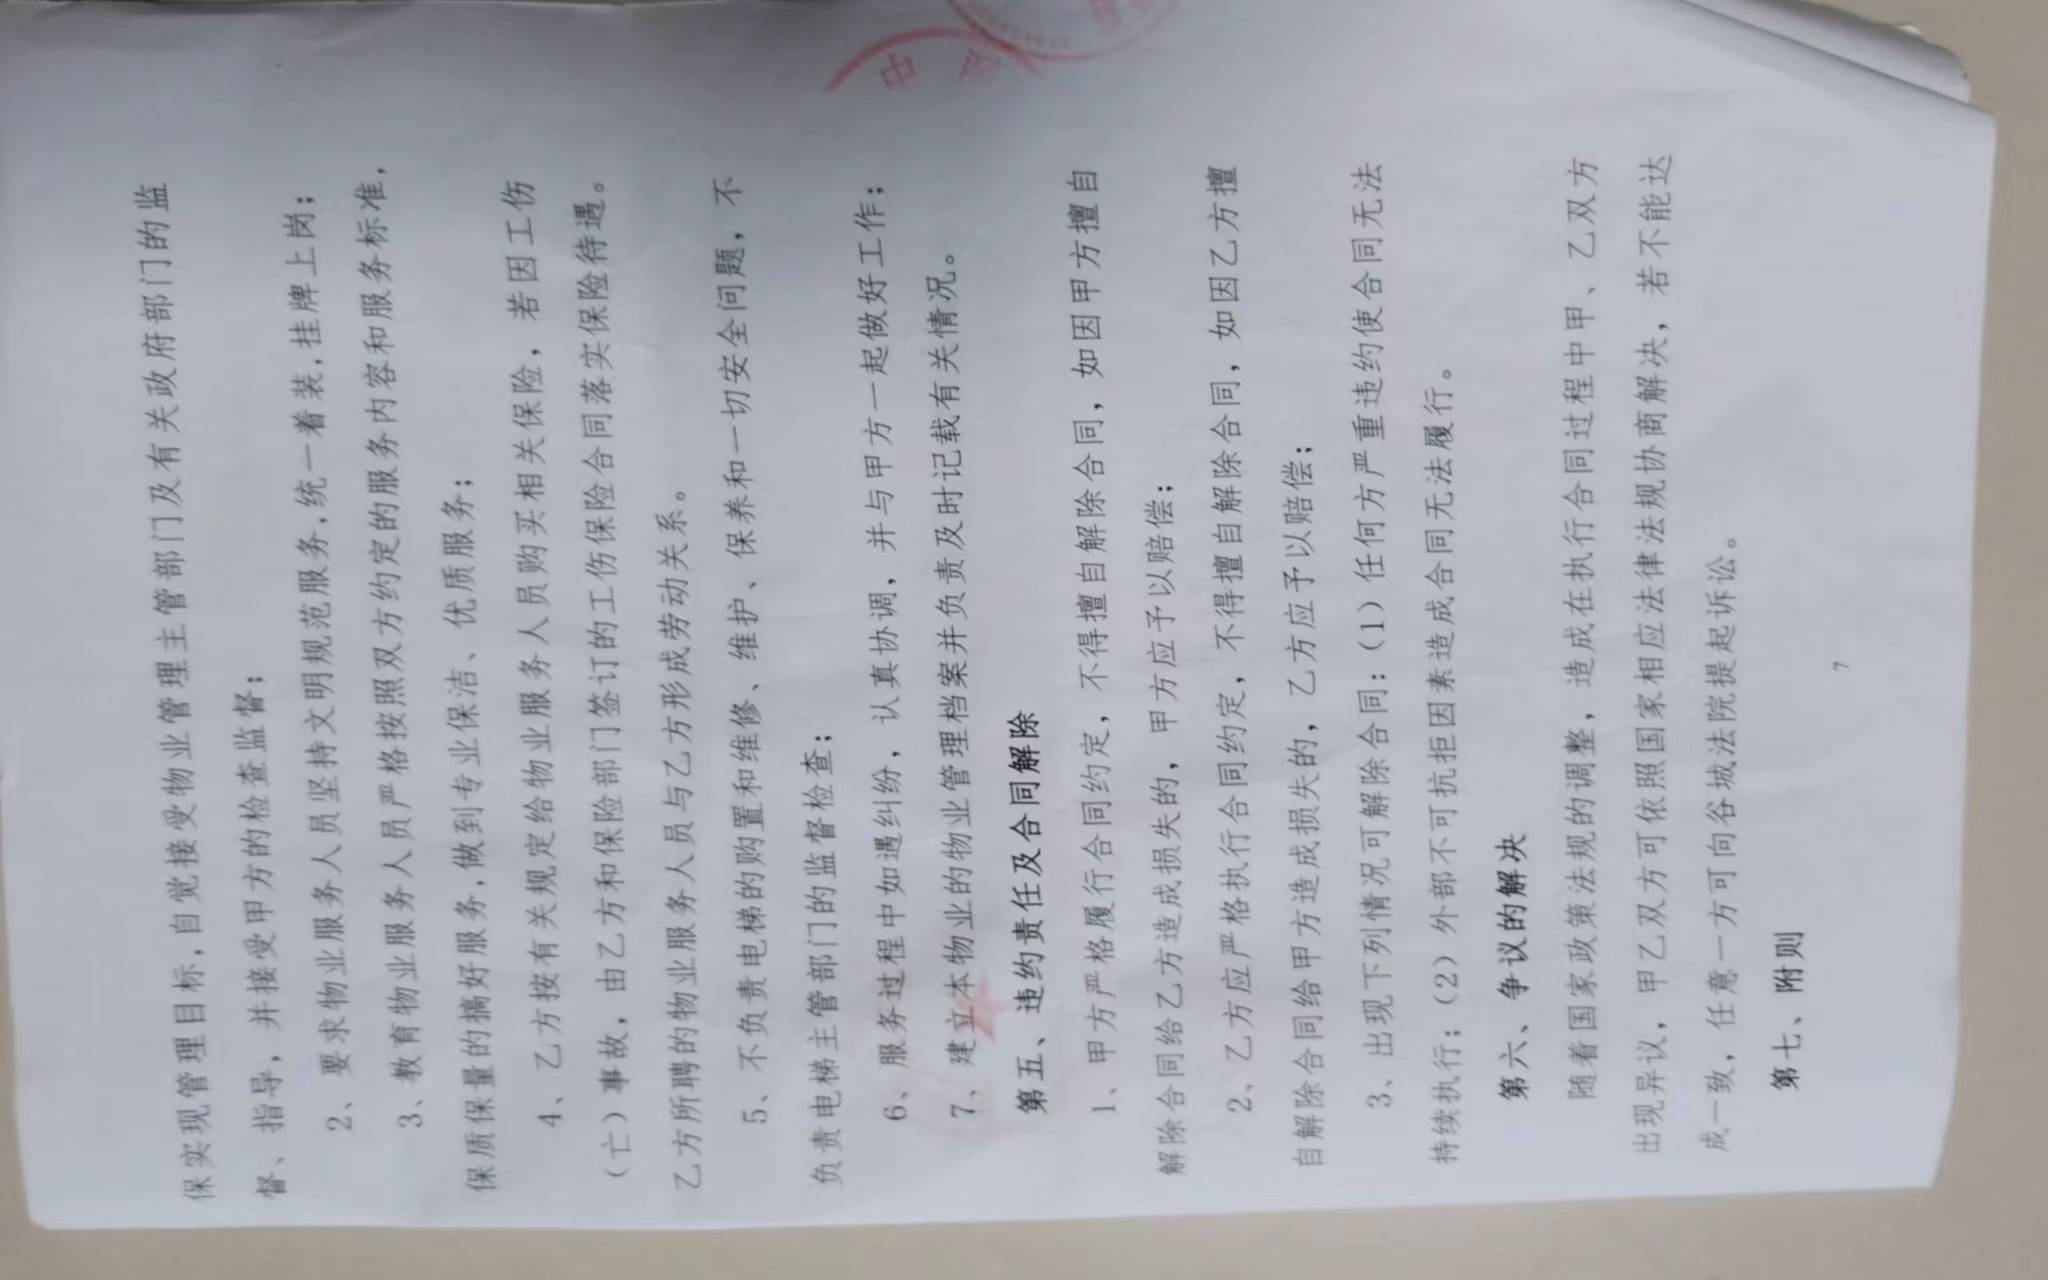 保实现管理目标,自觉接受物业管理主管部门及有关政府部门的监
督、指导，并接受甲方的检查监督；
2、要求物业服务人员坚持文明规范服务,统一着装,挂牌上岗；
3、教育物业服务人员严格按照双方约定的服务内容和服务标准，
保质保量的搞好服务,做到专业保洁、优质服务；
4、乙方按有关规定给物业服务人员购买相关保险，若因工伤
（亡）事故，由乙方和保险部门签订的工伤保险合同落实保险待遇。
乙方所聘的物业服务人员与乙方形成劳动关系。
5、不负责电梯的购置和维修、维护、保养和一切安全问题，不
负责电梯主管部门的监督检查；
6、服务过程中如遇纠纷，认真协调，并与甲方一起做好工作；
7、建立本物业的物业管理档案并负责及时记载有关情况。
第五、违约责任及合同解除
1、甲方严格履行合同约定，不得擅自解除合同，如因甲方擅自
解除合同给乙方造成损失的，甲方应予以赔偿；
2、乙方应严格执行合同约定，不得擅自解除合同，如因乙方擅
自解除合同给甲方造成损失的，乙方应予以赔偿；
3、出现下列情况可解除合同：（1）任何方严重违约使合同无法
持续执行；（2）外部不可抗拒因素造成合同无法履行。
第六、争议的解决
随着国家政策法规的调整，造成在执行合同过程中甲、乙双方
出现异议，甲乙双方可依照国家相应法律法规协商解决，若不能达
成一致，任意一方可向谷城法院提起诉讼。
第七、附则
7
中